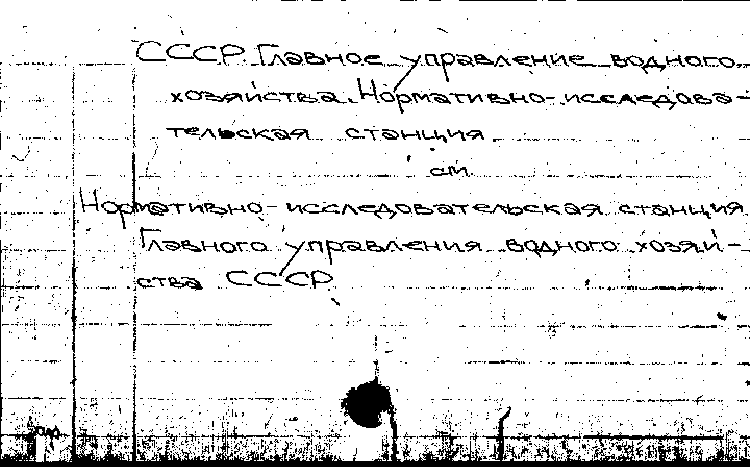 СССР. Главное управление водного
хозяйства. Нормативно-исследова-
тельская станция.
см.
Нормативно-исследовательская станция
Главного управления водного хозяй-
ства СССР.